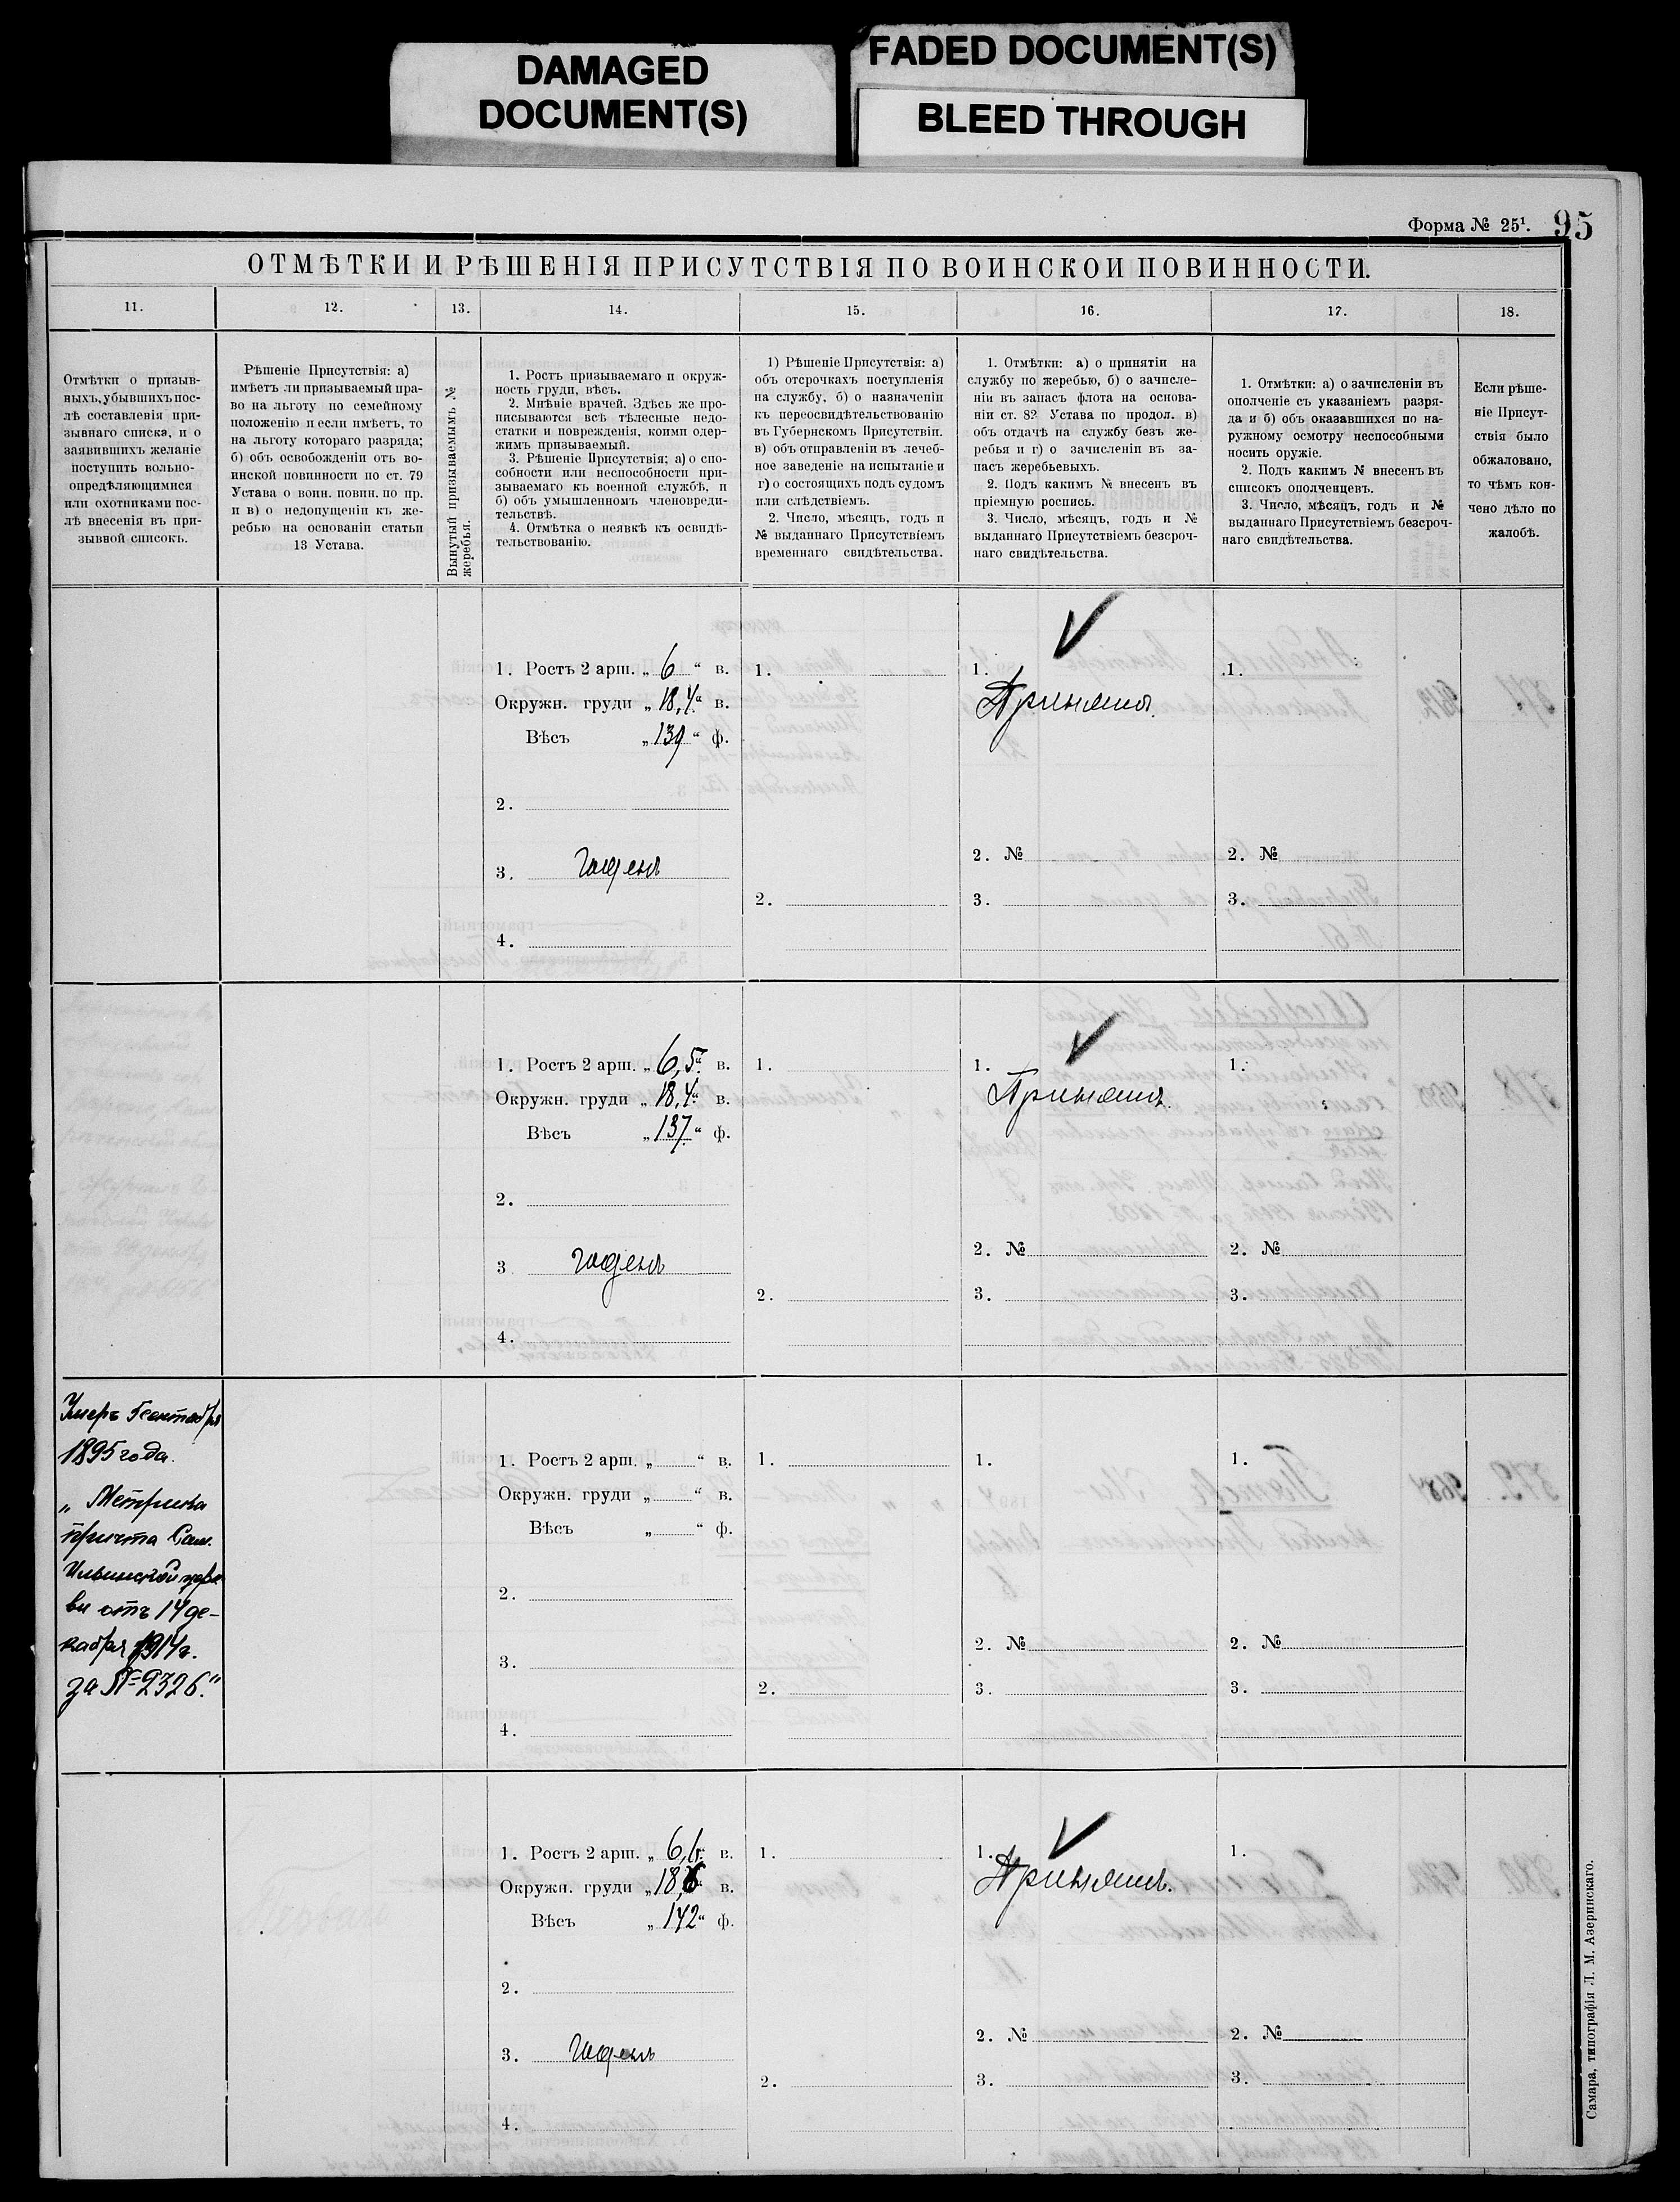 DAMAGED
DOCUMENT(S)
FADED DOCUMENT(S)
BLEED THROUGH
Форма № 25¹. 95
ОТМѢТКИ И РѢШЕНІЯ ПРИСУТСТВІЯ ПО ВОИНСКОИ ПОВИННОСТИ.
11. 12. 13. 14. 15. 16. 17. 18.
Отмѣтки о призыв-
ныхъ, убывшихъ пос-
лѣ составленія при-
зывнаго списка, и о
заявившихъ желаніе
поступить вольно-
опредѣляющимися
или охотниками пос-
лѣ внесенія въ при-
зывной списокъ.
Рѣшеніе Присутствія: а)
имѣетъ ли призываемый пра-
во на льготу по семейному
положенію и если имѣетъ, то
на льготу котораго разряда;
б) объ освобожденіи отъ во-
инской повинности по ст. 79
Устава о воин. повин. по пр.
и в) о недопущеніи къ же-
ребью на основаніи статьи
13 Устава.
Вынутый призываемымъ №
жеребья.
1. Ростъ призываемаго и окруж-
ность груди, вѣсъ.
2. Мнѣніе врачей. Здѣсь же про-
писываются всѣ тѣлесные недо-
статки и поврежденія, коими одер-
жимъ призываемый.
3. Рѣшеніе Присутствія; а) о спо-
собности или неспособности при-
зываемаго къ военной службѣ, и
б) объ умышленномъ членовреди-
тельствѣ.
4. Отмѣтка о неявкѣ къ освидѣ-
тельствованію.
1) Рѣшеніе Присутствія: а)
объ отсрочкахъ поступленія
на службу, б) о назначеніи
къ переосвидѣтельствованію
въ Губернскомъ Присутствіи.
в) объ отправленіи въ лечеб-
ное заведеніе на испытаніе и
г) о состоящихъ подъ судомъ
или слѣдствіемъ.
2. Число, мѣсяцъ, годъ и
№ выданнаго Присутствіемъ
временнаго свидѣтельства.
1. Отмѣтки: а) о принятіи на
службу по жеребью, б) о зачисле-
ніи въ запасъ флота на основа-
ніи ст. 82 Устава по продол. в)
объ отдачѣ на службу безъ же-
ребья и г) о зачисленіи въ за-
пасъ жеребьевыхъ.
2. Подъ какимъ № внесенъ въ
пріемную роспись.
3. Число, мѣсяцъ, годъ и №
выданнаго Присутствіемъ безсроч-
наго свидѣтельства.
1. Отмѣтки: а) о зачисленіи въ
ополченіе съ указаніемъ разря-
да и б) объ оказавшихся по на-
ружному осмотру неспособными
носить оружіе.
2. Подъ какимъ № внесенъ въ
списокъ ополченцевъ.
3. Число, мѣсяцъ, годъ и №
выданнаго Присутствіемъ безсроч-
наго свидѣтельства.
Если рѣше-
ніе Присут-
ствія было
обжаловано,
то чѣмъ кон-
чено дѣло по
жалобѣ.
1. Ростъ 2 арш. „ 6 “ в. 1. 1. 1.
Окружн. груди „ 18,4 “ в. Принятъ.
Вѣсъ „ 139 “ ф.
2.
2. № 2. №
3. Годенъ
2. 3. 3.
4.
1. Ростъ 2 арш. „ 6,5 “ в. 1. 1. 1.
Окружн. груди „ 18,4 “ в. Принятъ.
Вѣсъ „ 137 “ ф.
2.
2. № 2. №
3 Годенъ
2. 3. 3.
4.
Умеръ 7 сентября
1895 года.
„ Метрика
причта Сам.
Ильинской церк-
ви отъ 14 де-
кабря 1914 г.
за № 2326.“
1. Ростъ 2 арш. „ “ в. 1. 1. 1.
Окружн. груди „ “ в.
Вѣсъ „ “ ф.
2.
2. № 2. №
3.
2. 3. 3.
4.
1. Ростъ 2 арш. „ 6, “ в. 1. 1. 1.
Окружн. груди „ 18,6 “ в. Принятъ.
Вѣсъ „ 142 “ ф.
2.
2. № 2. №
3. Годенъ
2. 3. 3.
4.
Самара, типографія Л. М. Азеринскаго.